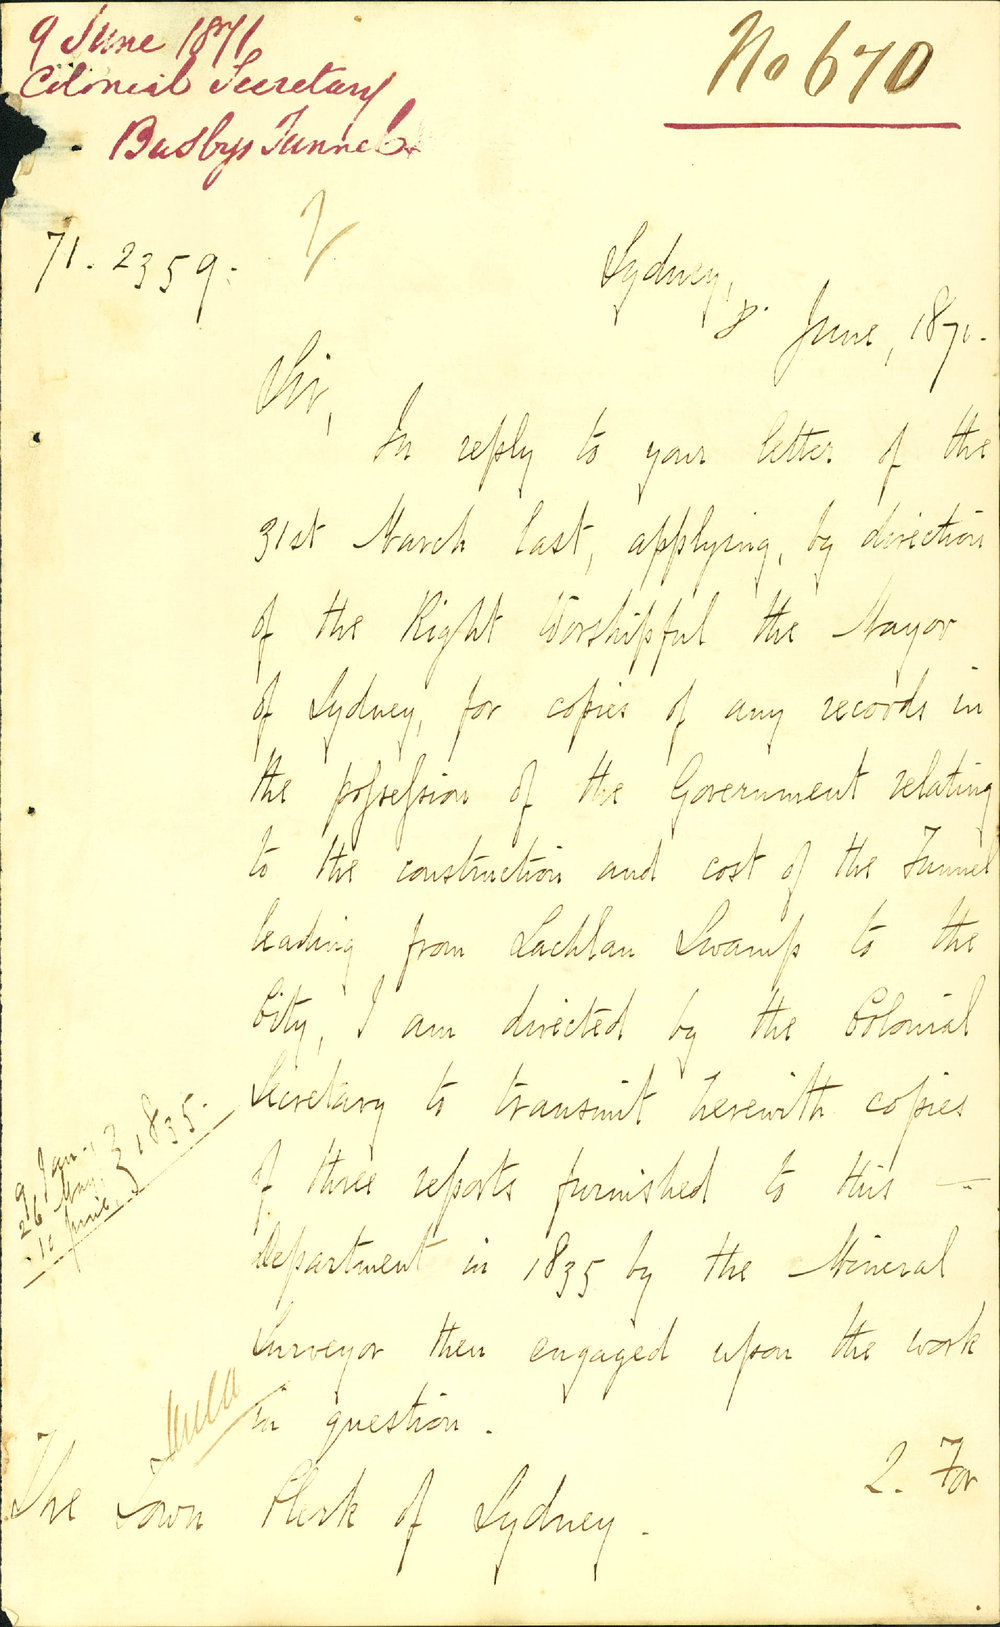 9 June 1871
Colonial Secretary
Busbys Tunnel
No 670
71. 2359.
Sydney,
8. June, 1871.
Sir,
In reply to your letter of the
31st March last, applying, by direction
of the Right Worshipful the Mayor
of Sydney, for copies of any records in
the possession of the Government relating
to the construction and cost of the Tunnel
leading from Lachlan Swamp to the
City, I am directed by the Colonial
Secretary to transmit herewith copies
9 Jan.,
26 May, } 1835.
10 June,
of three reports furnished to this —
Department in 1835 by the Mineral
Surveyor then engaged upon the work
in question.
2. For
The Town Clerk of Sydney.